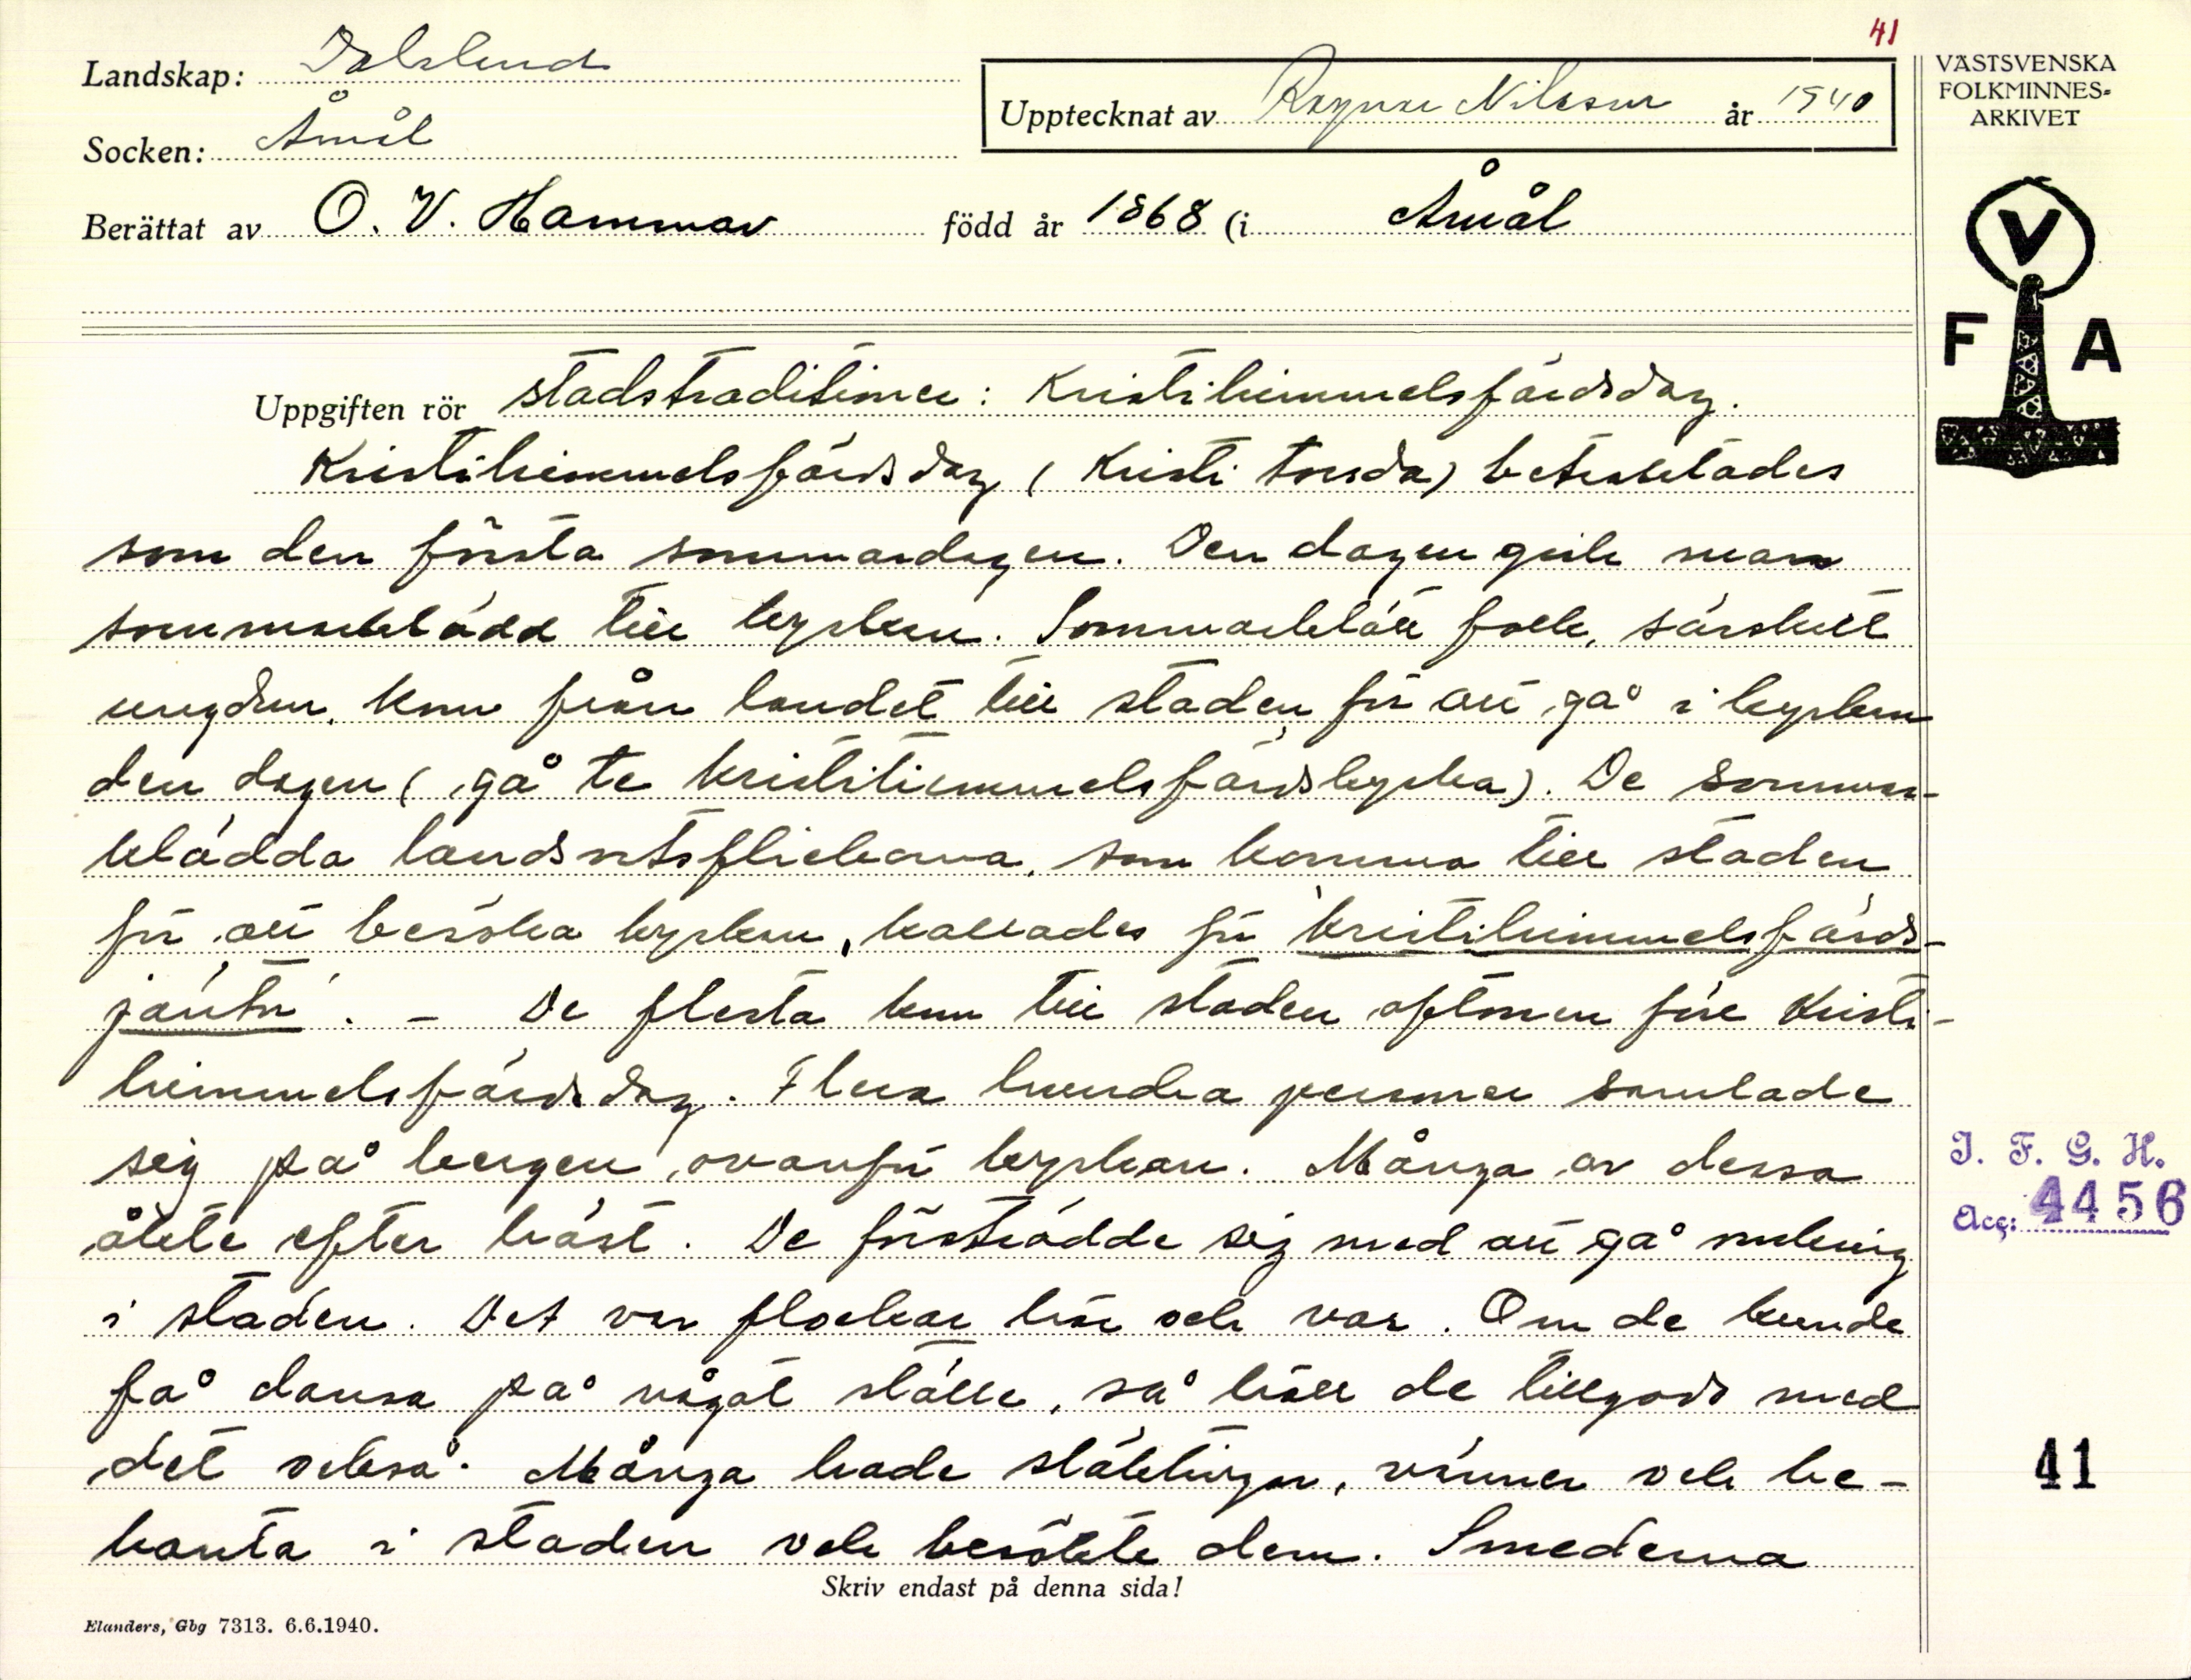 41
Landskap: Dalsland
Upptecknat av Ragnar Nilsson år 1940
VÄSTSVENSKA
FOLKMINNES-
ARKIVET
Socken: Åmål
Berättat av O. V. Hammar född år 1868 (i Åmål
V
F A
Uppgiften rör stadstraditioner: Kristihimmelsfärdsdag.
Kristihimmelsfärdsdag (Kristi torsda) betraktades
som den första sommardagen. Den dagen gick man
sommarklädd till kyrkan. Sommarklätt folk, särskilt
ungdom, kom från landet till staden för att gå i kyrkan
den dagen (gå te kristihimmelsfärdskyrka). De sommar-
klädda landsortsflickorna, som komma till staden
för att besöka kyrkan, kallades för 'kristihimmelsfärds-
jäntor'. - De flesta kom till staden aftonen före Kristi-
himmelsfärdsdag. Flera hundra personer samlade
sig på bergen ovanför kyrkan. Många av dessa
åkte efter häst. De förströdde sig med att gå omkring
i staden. Det var flockar här och var. Om de kunde
få dansa på något ställe, så höll de tillgodo med
det också. Många hade släktingar, vänner och be-
kanta i staden och besökte dem. Smederna
Skriv endast på denna sida!
Elanders, Gbg 7313. 6.6.1940.
I. F. G. H.
Acc: 4456
41